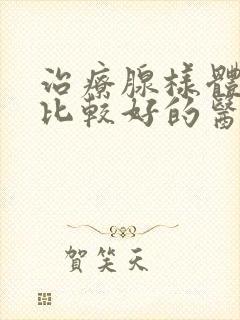 治療腺樣體
比較好的醫
賀笑天